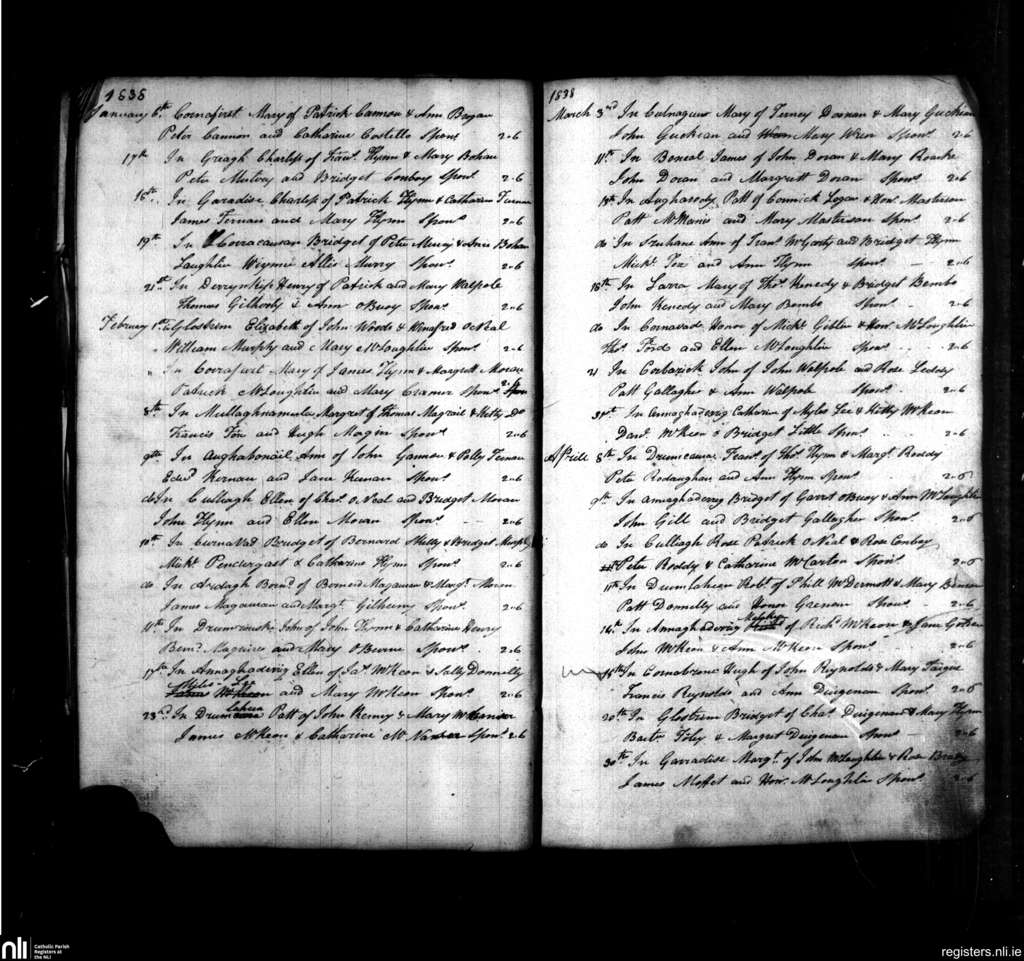 1838
January 6th Cornafirst Mary of Patrick Cannon & Ann Bryan
Peter Cannon and Catharine Costillo Spons 2-6
17th In Greagh Charles of Frans. Flynn & Mary Bohan
Peter Mulvey and Bridget Conboy Spons. 2-6
18th In Garadise Charles of Patrick Flynn & Catharine Ternan
James Ternan and Mary Flynn Spons 2-6
19th In Corracausan Bridget of Peter Murry & Anne Bohan
Laughlin Wynne Allis Murry Spons. 2-6
21st In Derryniss Henry of Patrick and Mary Walpole
Thomas Gilhooly & Ann OBury Spons. 2-6
February 1st Glostrim Elizabeth of John Woods & Winefred ONeal
William Murphy and Mary McLoughlin Spons. 2-6
" In Corrafirst Mary of James Flynn & Margrett Moran
Patrick McLoughlin and Mary Cramer Spons.
8th In Mullaghnameela Margret of Thomas Magrail & Hetty Do
Francis Fox and Hugh Magin Spons 2-6
9th In Aughabonail Ann of John Gannon & Polly Ternan
Edwd Kernan and Jane Kunan Spons. 2-6
do In Culleagh Ellen of Chas. ONeal and Bridget Moran
John Flynn and Ellen Moran Spons. 2-6
10th In Curnavad Bridget of Bernard Skelly & Bridget Murphy
Mickl Pendergast & Catharine Flynn Spons 2-6
do In Ardagh Bernd. of Bernard Magauran & Margt. Moran
James Magauran and Margt. Gilheeny Spons. 2-6
11th In Drumrewski John of John Flynn & Catharine Henry
Bernd. Maguire and Mary OBeirne Spons. 2-6
17th In Annaghaderig Ellen of Jas. McKeon & Sally Donnelly
Myles Lee and Mary McKeon Spons. 2-6
Lahera
23rd In Drum Patt of John Kenney & Mary McNamee
James McKeon & Catharine McNamee Spons. 2-6
1838
March 3rd In Culnagun Mary of Terney Dornan & Mary Guckian
John Guckian and Mary Wren Spons. 2-6
11th In Boneal James of John Doran & Mary Roarke
John Doran and Margrett Doran Spons. 2-6
18th In Augharody Patt of Connick Logan & Honr. Masterson
Patt McManis and Mary Masterson Spons. 2-6
do In Sruhane Ann of Frans. McGarty and Bridget Flynn
Mickl. Fox and Ann Flynn Spons. 2-6
18th In Larra Mary of Thos. Kenedy & Bridget Bembo
John Kenedy and Mary Bembo Spons. 2-6
do In Cornavade Honor of Mickl Giblin & Honr. McLoughlin
Thos. Ford and Ellen McLoughlin Spons. 2-6
21 In Corbarick John of John Walpole and Rose Leddy
Patt Gallagher & Ann Walpole Spons. 2-6
31st In Annaghaderig Catharine of Myles Lee & Kitty McKeon
Danl. McKeon & Bridget Little Spons. 2-6
Aprile 8th In Drumcanna Frans. of Thos. Flynn & Margt. Roddy
Pete Rodaughan and Ann Flynn Spons. 2-6
9th In Annaghaderry Bridget of Garret OBury & Ann McLaughlin
John Gill and Bridget Gallagher Spons. 2-6
do In Culleagh Rose Patrick ONeal & Rose Conboy
Peter Roddy & Catharine McCartan Spons. 2-6
11th In Drumlahean Robt. of Phill McDermott & Mary
Patt Donnelly and Honor Grenan Spons. 2-6
14th In Annaghaderrig of Richd McKeon & Jane
John McKeon & Ann McKeon Spons 2-6
18th In Cornabrone Hugh of John Reynolds & Mary Taigue
Francis Reynolds and Ann Duigenan Spons. 2-6
20th In Glostrim Bridget of Chas. Duigenan & Mary Flynn
Bartw. Foley & Margret Duigenan Spons 2-6
30th In Garradise Margt. of John McLoughlin & Rose Brady
James Moffet and Honr. McLoughlin Spons 2-6
nli
Catholic Parish
Registers at
the NLI
registers.nli.ie